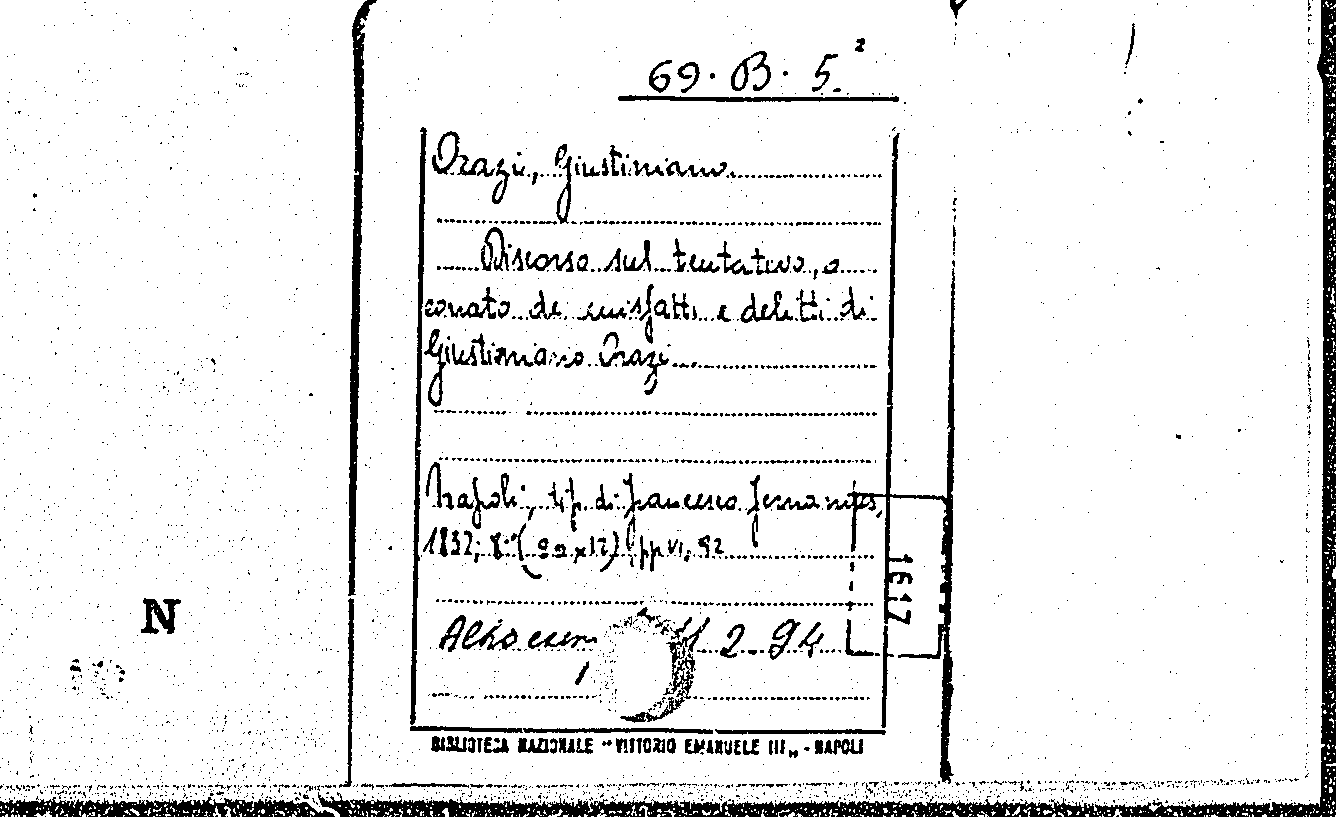 69. B. 5.²
Orazi, Giustiniano.
Discorso sul tentativo, o
conato de misfatti e delitti di
Giustiniano Orazi
Napoli, tip. di Francesco Fernandes,
1832; 8°( x12) pp VI, 92
1617
N
Altro esem 2-94
BIBLIOTECA NAZIONALE "VITTORIO EMANUELE III„ - NAPOLI